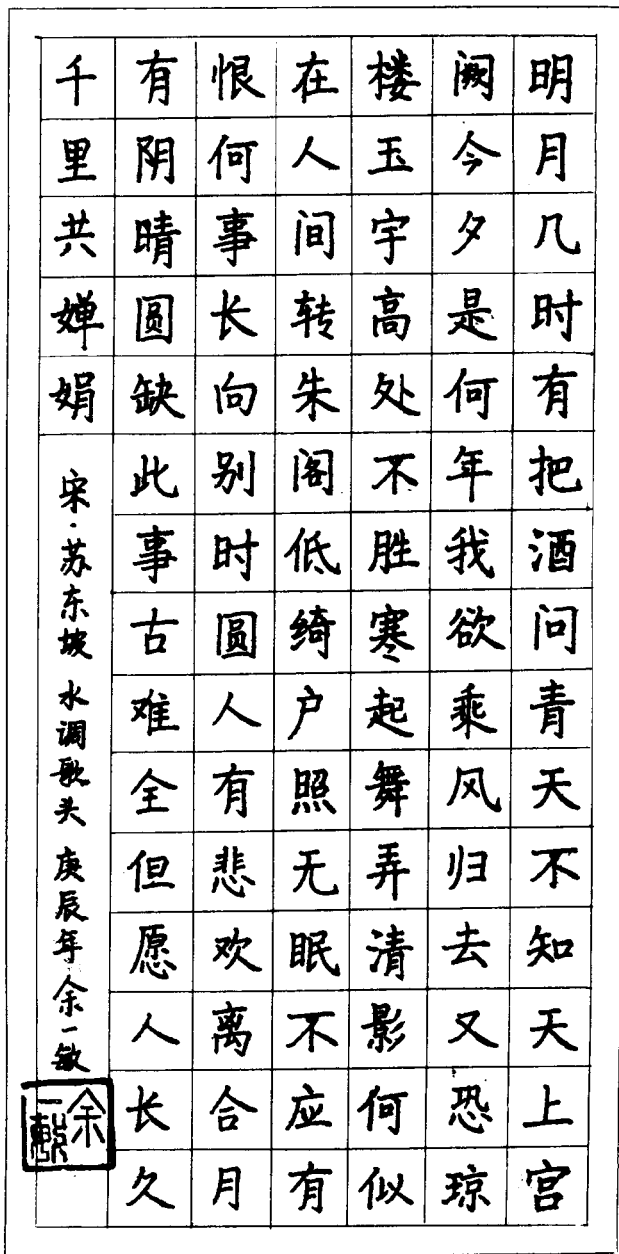 明月几时有把酒问青天不知天上宫
阙今夕是何年我欲乘风归去又恐琼
楼玉宇高处不胜寒起舞弄清影何似
在人间转朱阁低绮户照无眠不应有
恨何事长向别时圆人有悲欢离合月
有阴晴圆缺此事古难全但愿人长久
千里共婵娟 宋·苏东坡 水调歌头 庚辰年 余一敏
余一敏